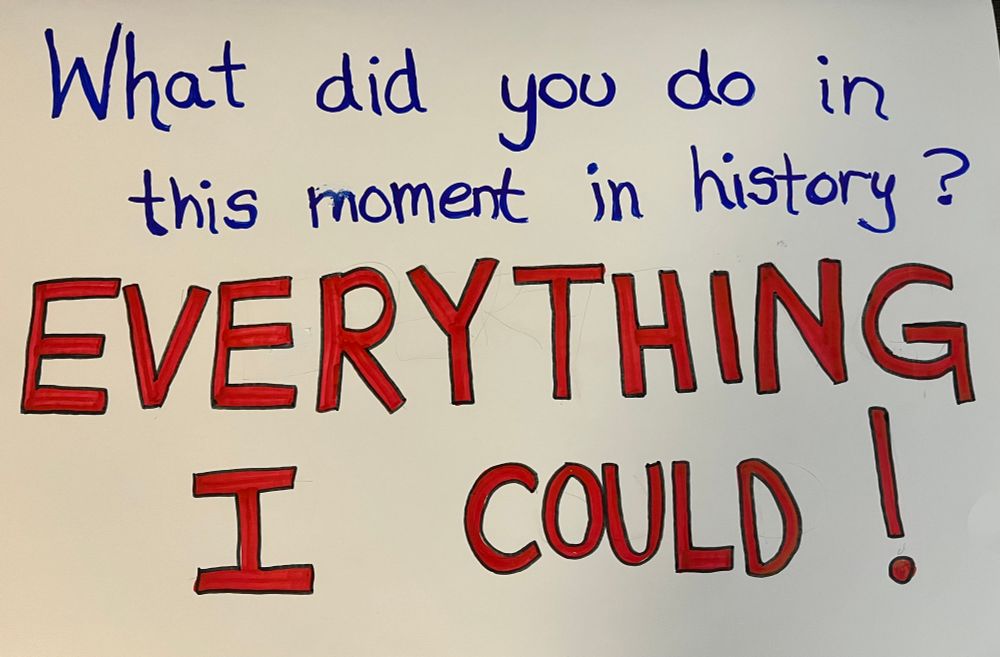 What did you do in
this moment in history?
EVERYTHING
I COULD!